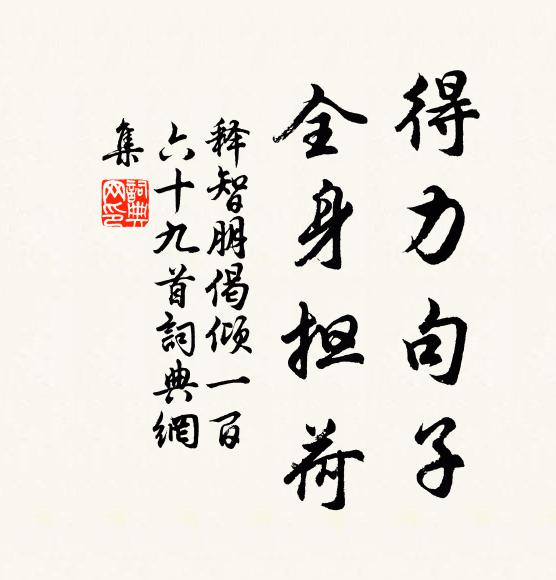 得力句子
全身担荷
释智朋偈倾一百
六十九首詞典網
集
詞典网印